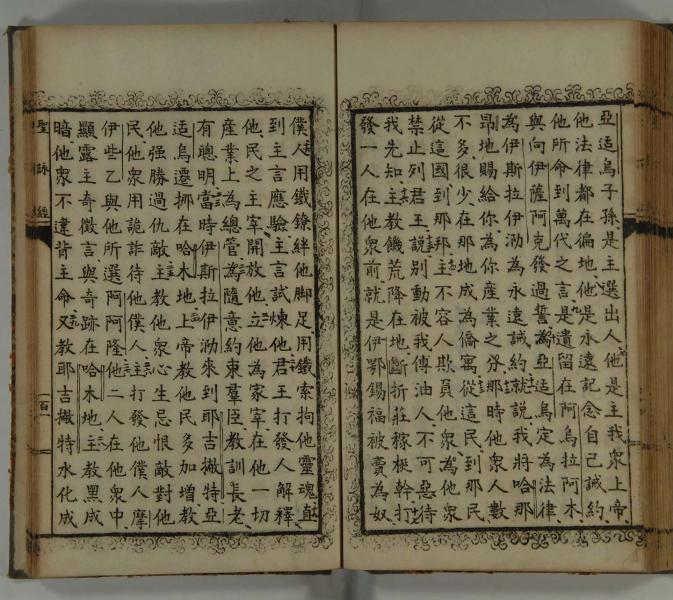 亞适烏子孫是主選出人他是主我衆上帝
他法律都在徧地他是永遠記念自己誡約
他所命到萬代之言是遺留在阿烏拉阿木
與向伊薩阿克發過誓為亞适烏定為法律
為伊斯拉伊泐為永遠誡約就說我將哈那
昻地賜給你為你産業之分那時他衆人數
不多很少在那地成為僑寓從這民到那民
從這國到那邦主不容人欺負他衆為他衆
禁止列君王說別動被我傅油人不可惡待
我先知主教饑荒降在地斷折莊稼梃幹打
發一人在他衆前就是伊鄂錫福被賣為奴
僕人用鐵鐐絆他脚足用鐵索拘他靈魂直
到主言應驗主言試煉他君王打發人解釋
他民之主宰開放他立他為家宰在他一切
産業上為總管為隨意約束羣臣教訓長老
有聰明當時伊斯拉伊泐來到耶吉撇特亞
适烏遷挪在哈木地上帝教他民多加增教
他强勝過仇敵主教他衆心生忌恨敵對他
民他衆用詭詐待他僕人主打發他僕人摩
伊些乙與他所選阿阿隆他二人在他衆中
顯露主奇徵言與奇跡在哈木地主教黑成
暗他衆不違背主命又教耶吉撇特水化成
聖詠經